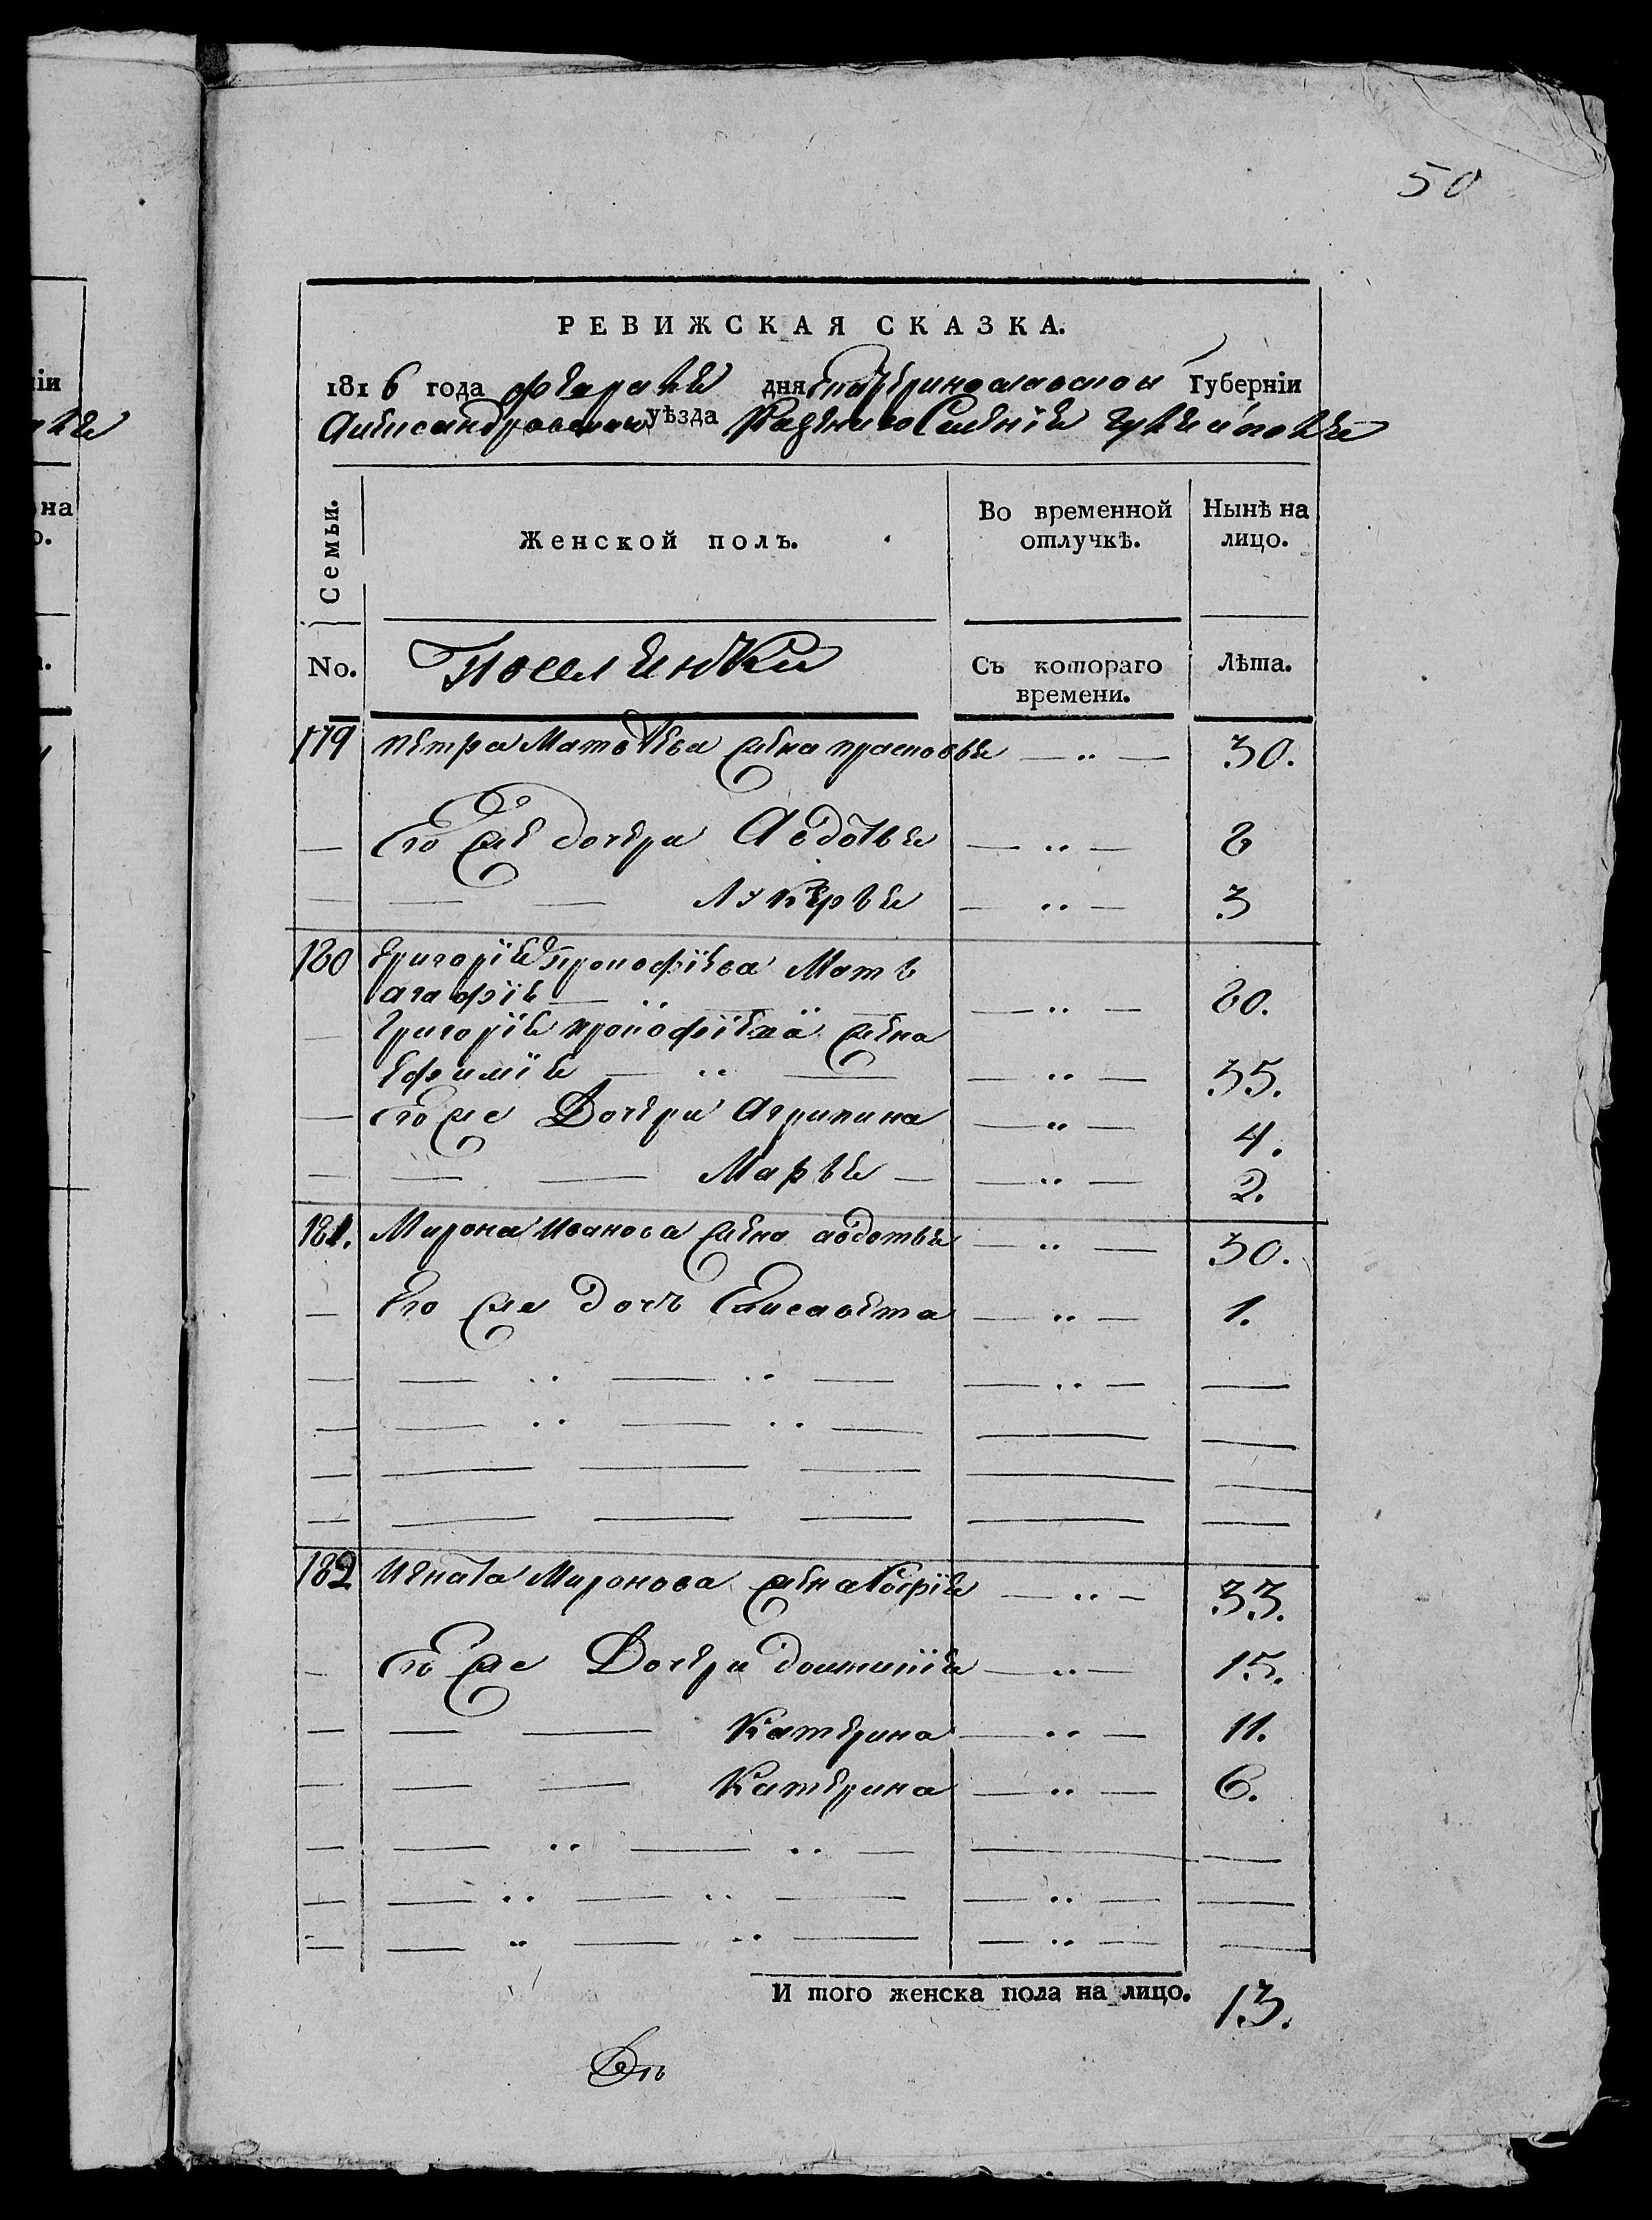 50
РЕВИЖСКАЯ СКАЗКА.
1816 года февраля дня Екатеринославской Губерніи
Александровского уѣзда Казеного Селенія
Семьи.
Женской полъ.
Во временной отлучкѣ.
Нынѣ на лицо.
No.
Поселянки
Съ котораго времени.
Лѣта.
179 Петра Матвѣева жена прасковья — „ — 30.
— Его же дочери Авдотья — „ — 8
— — — Лукерья — „ — 3
180 Григорія Прокофіева Мать
агафія — „ — — „ — 80.
— Григорія прокофіева жена
Ефимія — „ — — „ — 35.
— Его же Дочери Агрипина — „ — 4.
— — — Марья — — „ — 2.
181. Мирона Иванова жена авдотья — „ — 30.
— Его же дочь Елисавета — „ — 1.
— — „ — „ — — „ — —
— — „ — „ — — —
— — — — — —
— — — — — —
182 Игната Миронова жена Софія — „ — 33.
— Его же Дочери домникія — „ — 15.
— — — Катерина — „ — 11.
— — — Катерина — „ — 6.
— — „ — „ — — —
— — „ — „ — — „ — —
— — „ — „ — — „ — —
И того женска пола на лицо. 13.